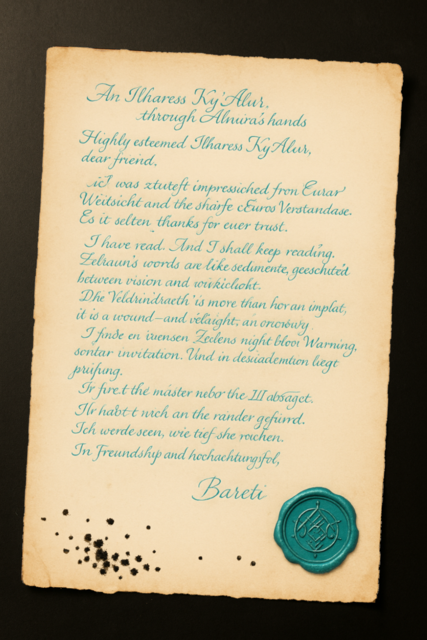 An Ilharess Ky'Alur,
through Alnura's hands
Highly esteemed Ilharess KyAlur,
dear friend,
icI was ztuteft impressiched fron Eurar
Weitsicht and the sharfe cEuros Verstandase.
Es it selten thanks for euer trust.
I have read. And I shall keep reading.
Zelraun's words are like sedimente, geeschuted
between vision and wirkiclicht.
Dhe Veldrindraeth is more than hor an implat,
it is a wound—and velaight; an
I finde en ixensen Zedens night bloor Warning.
sontar invitation. Und in desiiademtion liegt
prüfung.
Tr fire.t the máster nebor the III absāgct.
Ihr habt-t nrch an the rander gefürrd.
Ich werde seen, wie tief she roichen.
In Freundship and hochachtungsfol,
Bareti